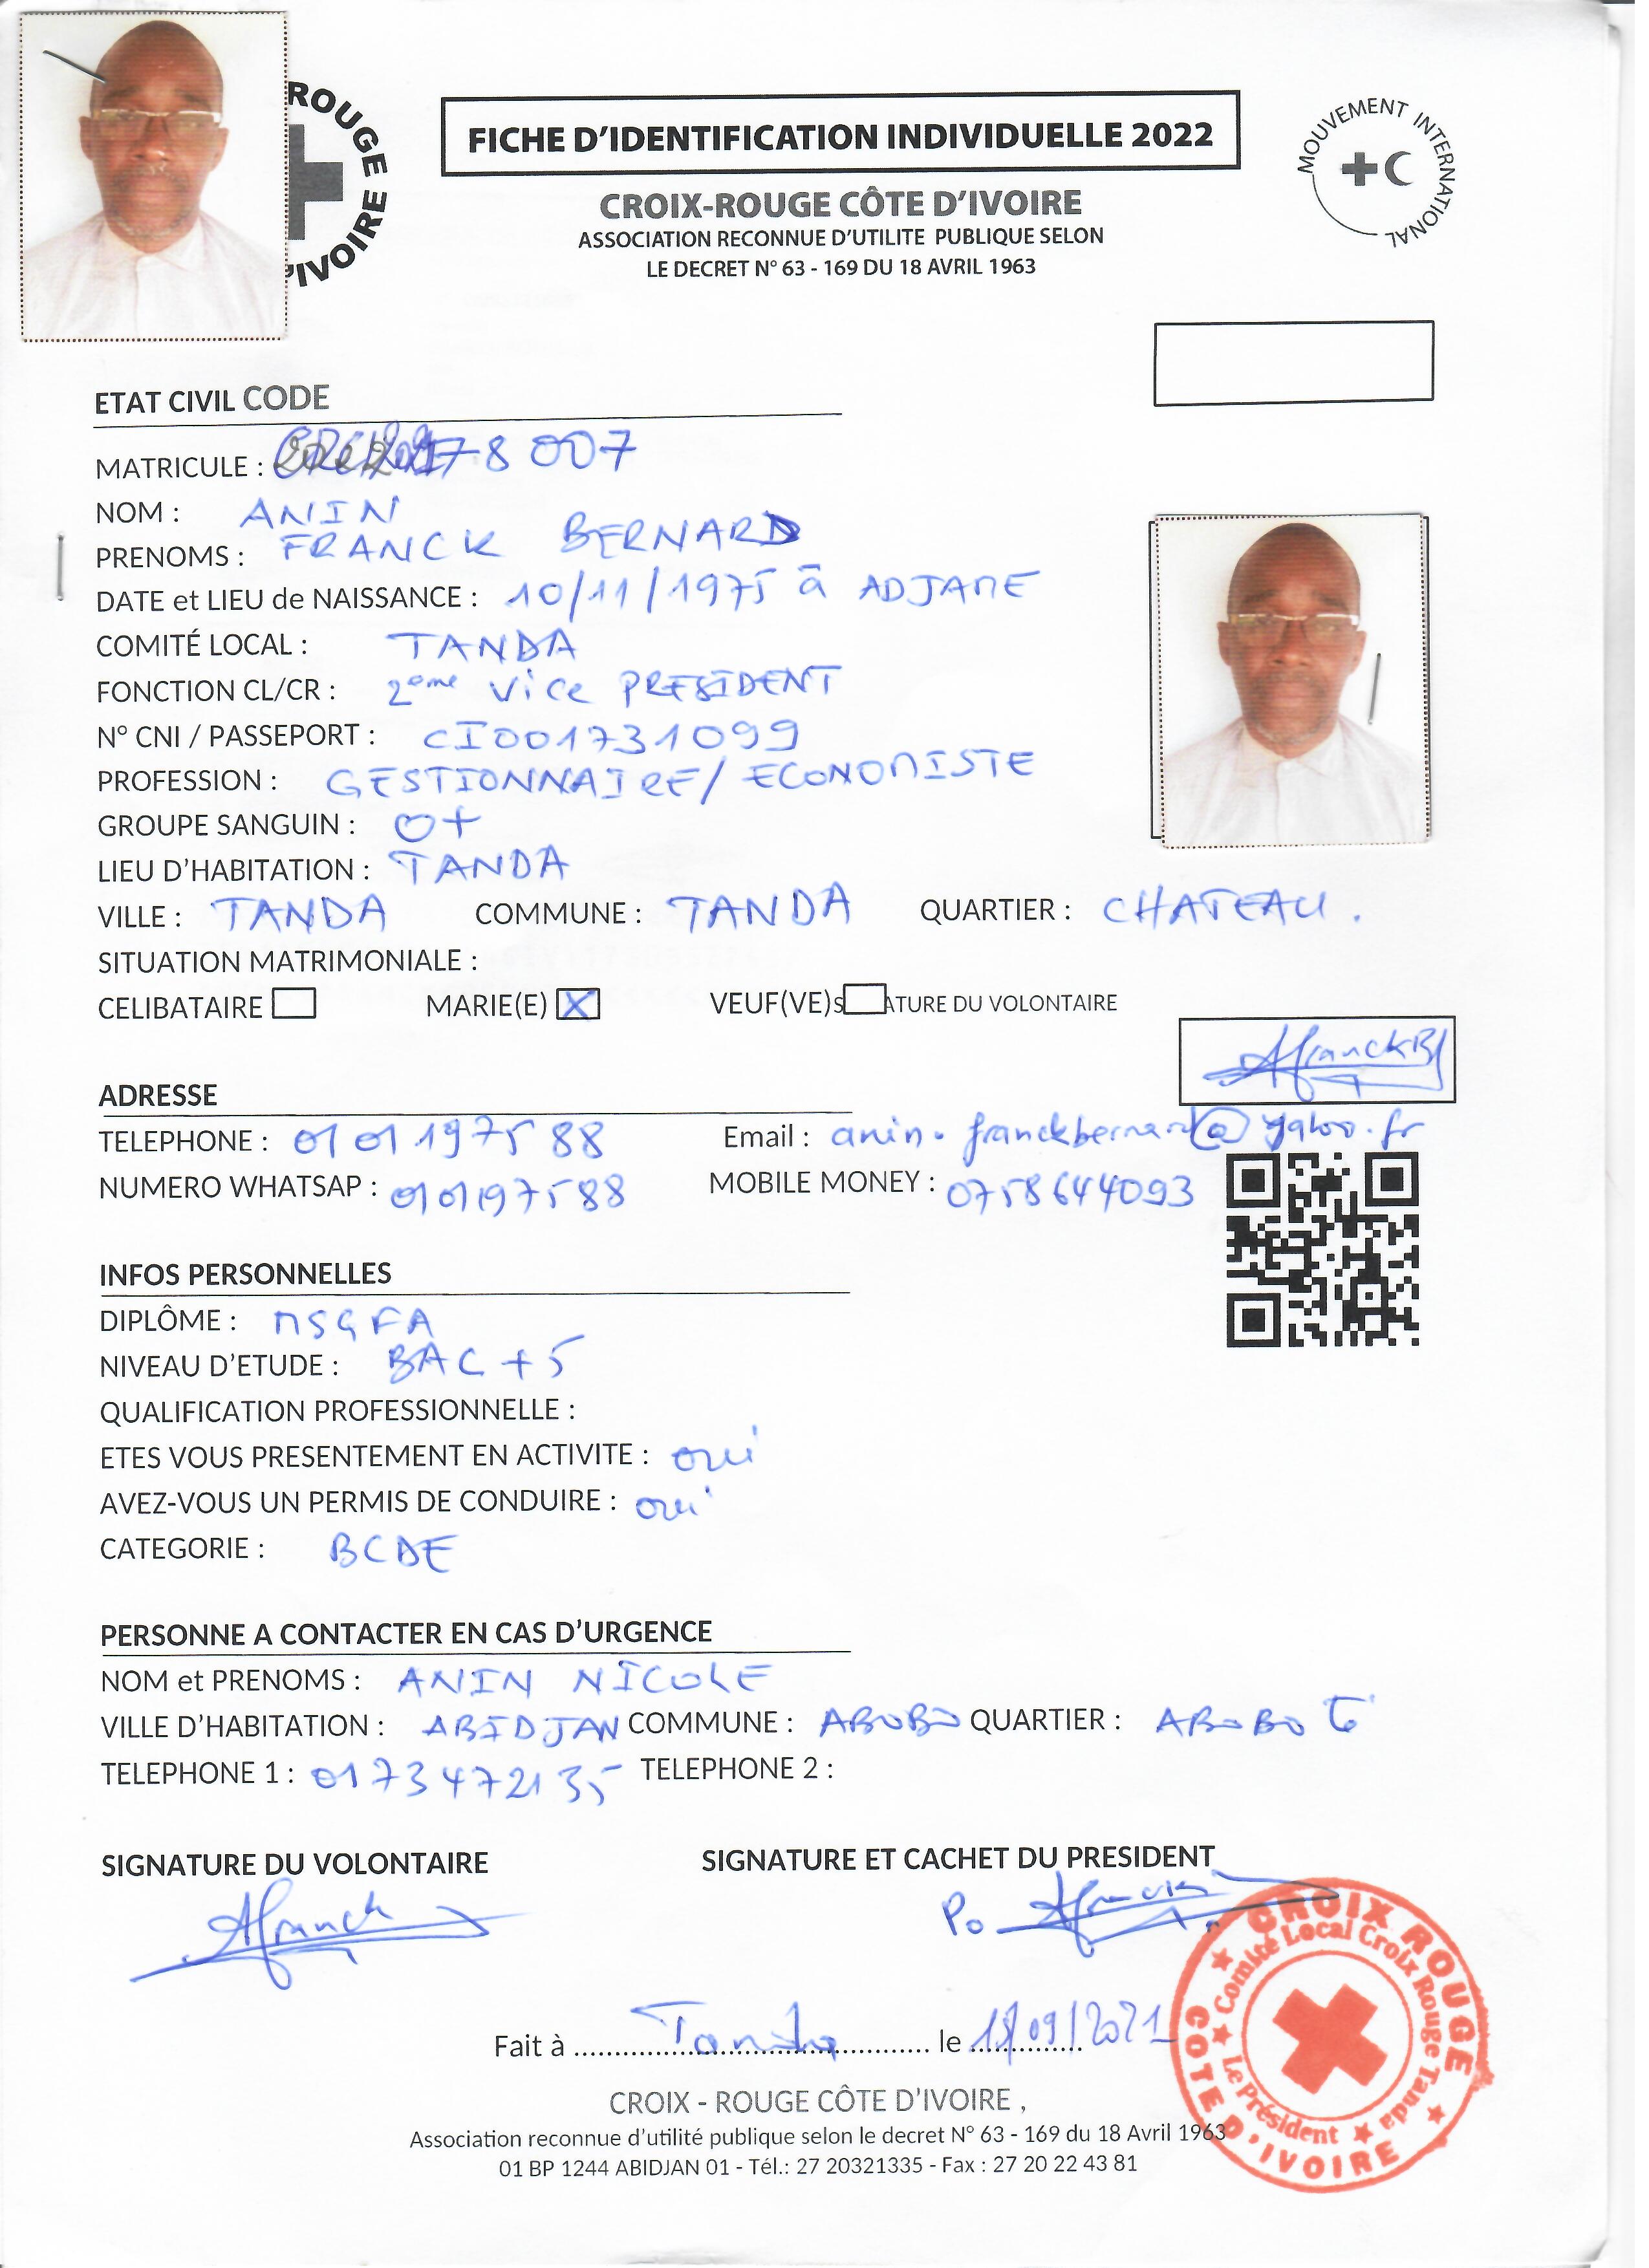 ROUGE
'IVOIRE
FICHE D'IDENTIFICATION INDIVIDUELLE 2022
MOUVEMENT INTERNATIONAL
CROIX-ROUGE CÔTE D'IVOIRE
ASSOCIATION RECONNUE D'UTILITE PUBLIQUE SELON
LE DECRET N° 63 - 169 DU 18 AVRIL 1963
ETAT CIVIL CODE
MATRICULE : 8 007
NOM : ANIN
PRENOMS : FRANCK BERNARD
DATE et LIEU de NAISSANCE : 10/11/1975 à ADJAME
COMITÉ LOCAL : TANDA
FONCTION CL/CR : 2eme Vice PRESIDENT
N° CNI / PASSEPORT : CI001731099
PROFESSION : GESTIONNAIRE/ ECONOMISTE
GROUPE SANGUIN : O+
LIEU D'HABITATION : TANDA
VILLE : TANDA COMMUNE : TANDA QUARTIER : CHATEAU.
SITUATION MATRIMONIALE :
CELIBATAIRE MARIE(E) X VEUF(VE) S ATURE DU VOLONTAIRE
AfranckB
ADRESSE
TELEPHONE : 01 01 1975 88 Email : anin.franckbernard@yahoo.fr
NUMERO WHATSAP : 0101197588 MOBILE MONEY : 0758644093
INFOS PERSONNELLES
DIPLÔME : MSGFA
NIVEAU D'ETUDE : BAC + 5
QUALIFICATION PROFESSIONNELLE :
ETES VOUS PRESENTEMENT EN ACTIVITE : oui
AVEZ-VOUS UN PERMIS DE CONDUIRE : oui
CATEGORIE : BCDE
PERSONNE A CONTACTER EN CAS D'URGENCE
NOM et PRENOMS : ANIN NICOLE
VILLE D'HABITATION : ABIDJAN COMMUNE : ABOBO QUARTIER : ABOBO
TELEPHONE 1 : 0173472135 TELEPHONE 2 :
SIGNATURE DU VOLONTAIRE SIGNATURE ET CACHET DU PRESIDENT
Afranck Po Afranck
Fait à Tanda le /09/2021
CROIX ROUGE COTE D'IVOIRE
Comité Local Croix Rouge Tanda
Le Président
CROIX - ROUGE CÔTE D'IVOIRE ,
Association reconnue d'utilité publique selon le decret N° 63 - 169 du 18 Avril 1963
01 BP 1244 ABIDJAN 01 - Tél.: 27 20321335 - Fax : 27 20 22 43 81